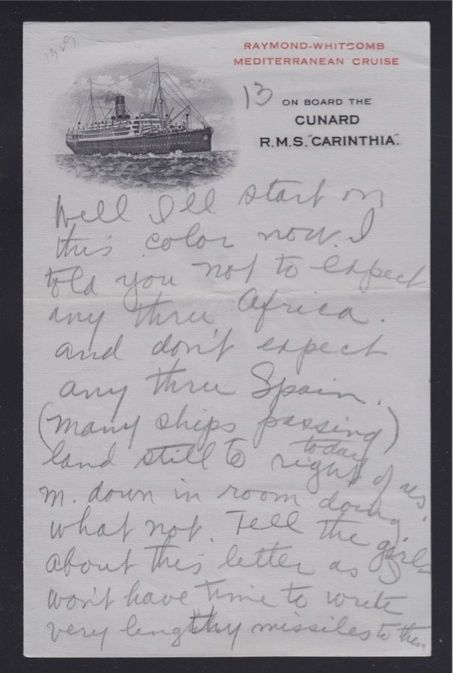 1929
RAYMOND-WHITCOMB
MEDITERRANEAN CRUISE
13
ON BOARD THE
CUNARD
R.M.S. "CARINTHIA".
Well I'll start on
this color now. I
told you not to expect
any thru Africa.
and don't expect
any thru Spain.
(many ships passing)
today
land still to right of us.
m. down in room doing
what not. Tell the girls
about this letter as I
won't have time to write
very lengthy missiles to them